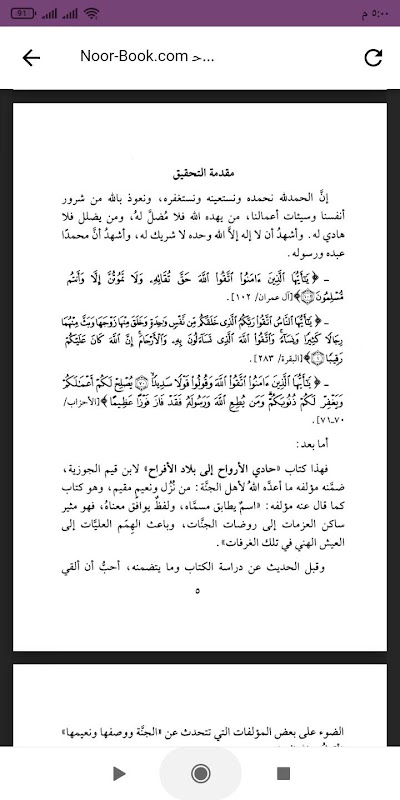 91
٥:٠٠ م
Noor-Book.com حـ...
مقدمة التحقيق
إنَّ الحمدلله نحمده ونستعينه ونستغفره، ونعوذ بالله من شرور
أنفسنا وسيئات أعمالنا، من يهده الله فلا مُضلَّ لهُ، ومن يضلل فلا
هادي له. وأشهدُ أن لا إله إلاَّ الله وحده لا شريك له، وأشهدُ أنَّ محمدًا
عبده ورسوله.
ـ ﴿ يَٰٓأَيُّهَا ٱلَّذِينَ ءَامَنُوا۟ ٱتَّقُوا۟ ٱللَّهَ حَقَّ تُقَاتِهِۦ وَلَا تَمُوتُنَّ إِلَّا وَأَنتُم
مُّسْلِمُونَ ١٠٢﴾[آل عمران/ ١٠٢].
ـ ﴿ يَٰٓأَيُّهَا ٱلنَّاسُ ٱتَّقُوا۟ رَبَّكُمُ ٱلَّذِى خَلَقَكُم مِّن نَّفْسٍ وَٰحِدَةٍ وَخَلَقَ مِنْهَا زَوْجَهَا وَبَثَّ مِنْهُمَا
رِجَالًا كَثِيرًا وَنِسَآءً ۚ وَٱتَّقُوا۟ ٱللَّهَ ٱلَّذِى تَسَآءَلُونَ بِهِۦ وَٱلْأَرْحَامَ ۚ إِنَّ ٱللَّهَ كَانَ عَلَيْكُمْ
رَقِيبًا ١﴾[البقرة/ ٢٨٣].
ـ ﴿ يَٰٓأَيُّهَا ٱلَّذِينَ ءَامَنُوا۟ ٱتَّقُوا۟ ٱللَّهَ وَقُولُوا۟ قَوْلًا سَدِيدًا ٧٠ يُصْلِحْ لَكُمْ أَعْمَٰلَكُمْ
وَيَغْفِرْ لَكُمْ ذُنُوبَكُمْ ۗ وَمَن يُطِعِ ٱللَّهَ وَرَسُولَهُۥ فَقَدْ فَازَ فَوْزًا عَظِيمًا ﴾[الأحزاب/
٧٠-٧١].
أما بعد:
فهذا كتاب «حادي الأرواح إلى بلاد الأفراح» لابن قيم الجوزية،
ضمَّنه مؤلفه ما أعدَّه اللهُ لأهل الجنَّة: من نُزُل ونعيمٍ مقيم، وهو كتاب
كما قال عنه مؤلفه: «اسمٌ يطابق مسمَّاه، ولفظٌ يوافق معناهُ، فهو مثير
ساكن العزمات إلى روضات الجنَّات، وباعث الهِمَم العليَّات إلى
العيش الهني في تلك الغرفات».
وقبل الحديث عن دراسة الكتاب وما يتضمنه، أحبُّ أن ألقي
٥
الضوء على بعض المؤلفات التي تتحدث عن «الجنَّة ووصفها ونعيمها»